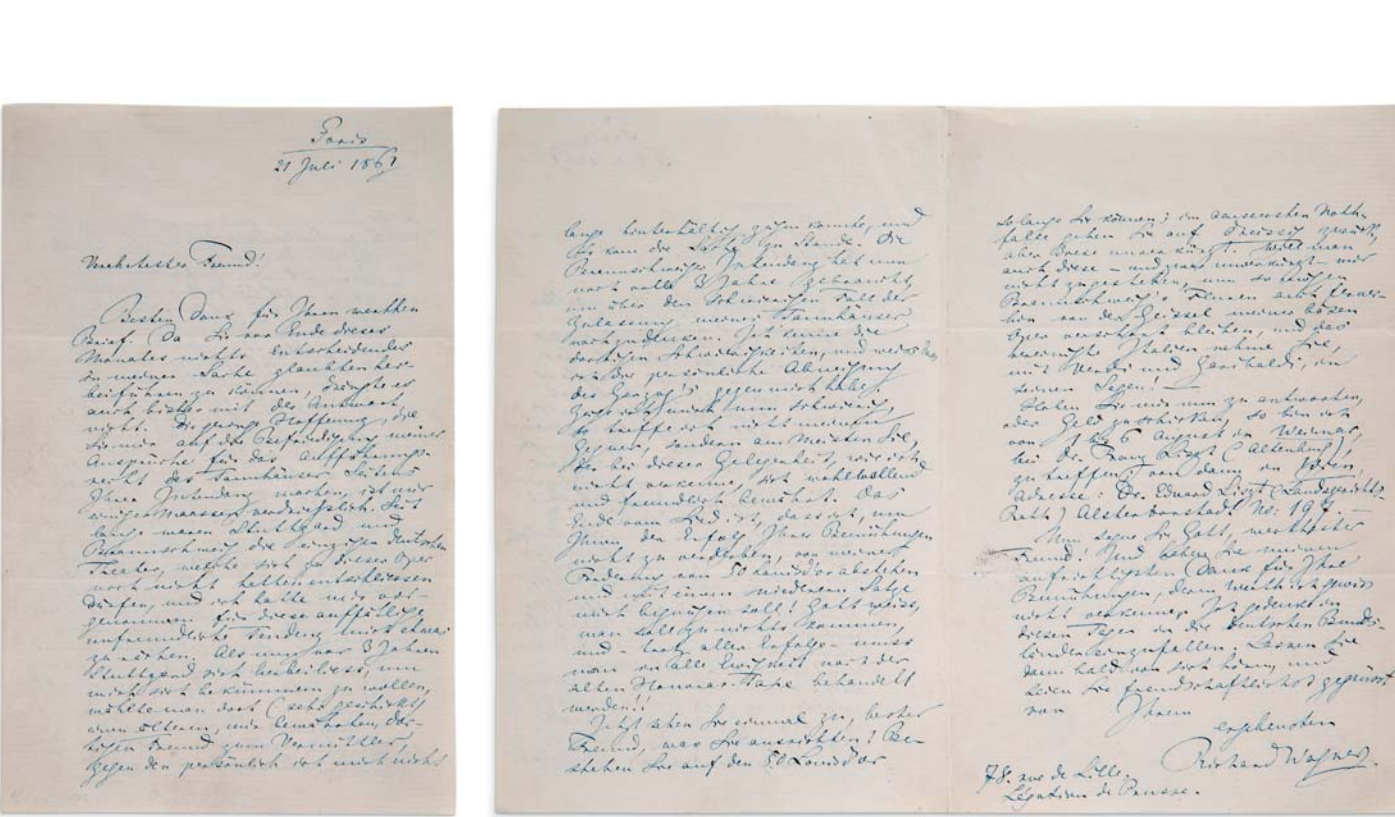 Paris
21 Juli 1861
Verehrtester Freund!
Besten Dank für Ihren werthen
Brief. Da Sie vor Ende dieses
Monates nichts Entscheidendes
in meiner Sache glaubten her-
beiführen zu können, drängte es
auch bisher mit der Antwort
nicht. Die geringe Hoffnung, die
Sie mir auf die Befriedigung meiner
Ansprüche für das Aufführungs-
recht des Tannhäuser Seitens
Ihrer Intendanz machen, ist mir
einigermaassen verdriesslich. Seit
lange waren Stuttgard und
Braunschweig die einzigen deutschen
Theater, welche sich zu dieser Oper
noch nicht hatten entschliessen
dürfen, und ich hatte mir vor-
genommen für diese auffällige
unfreundliche Tendenz mich etwas
zu rächen. Als nun vor 3 Jahren
Stuttgard sich herbeiliess, um
mich sich bekümmern zu wollen,
wählte man dort (sehr geschickt)
einen älteren, mir bewährten, dor-
tigen Freund zum Vermittler,
gegen den persönlich ich mich nicht
lange hinterhältig zeigen konnte, und
so kam die Sache zu Stande. Die
Braunschweiger Intendanz hat nun
noch volle 3 Jahre gebraucht,
um über den schwierigen Fall der
Zulassung meines Tannhäuser
nachzudenken. Ich kenne die
dortigen Schwierigkeiten, und weiss
die persönliche Abneigung
des Herzog's gegen mich
Zeige ich mich nun schwierig,
so treffe ich nicht meinen
Gegner, sondern am Meisten Sie,
der bei dieser Gelegenheit, wie ich
nicht verkenne, sich wohlwollend
und freundlich bemüht. Das
Ende vom Lied ist, dass ich, um
Ihnen den Erfolg Ihrer Bemühungen
nicht zu verderben, von meiner
Forderung von 50 Louisd'or abstehen
und mit einem niederen Satze
mich begnügen soll! Gott weiss,
man soll zu nichts kommen,
und – trotz aller Erfolge – muss
man in alle Ewigkeit nach der
alten Honorar-Taxe behandelt
werden!!
Jetzt sehen Sie einmal zu, bester
Freund, was Sie ausrichten! Be-
stehen Sie auf den 50 Louisd'or
so lange Sie können; im aeussersten Noth-
falle gehen Sie auf Dreissig zurück,
aber Diese unverkürzt. Will man
auch diese – und zwar unverkürzt – mir
nicht zugestehen, nun so mögen
Braunschweig's auch ferner-
hin von der Geissel meiner bösen
Oper verschont bleiben, und das
vereinigte Italien nehme Sie,
mit Verdi und Garibaldi, in
seinen Segen! –
Haben Sie mir nun zu antworten,
oder Geld zu schicken, so bin ich
von 1 bis 6 August in Weimar,
bei Dr. Franz Liszt (Altenburg)
zu treffen, von dann in Wien,
Adresse: Dr. Eduard Liszt (Landsgerichts-
Rath) Alservorstadt No: 194. –
Nun segne Sie Gott, werthester
Freund! Und haben Sie meinen
aufrichtigsten Dank für Ihre
Bemühungen, deren Werth ich gewiss
nicht verkenne. Ich gedenke in
diesen Tagen in die deutschen Bundes-
länder einzufallen. Lassen Sie
dann bald von sich hören, und
seien Sie freundschaftlichst gegrüsst
von Ihrem
ergebensten
Richard Wagner.
78. rue de Lille.
Légation de Prusse.